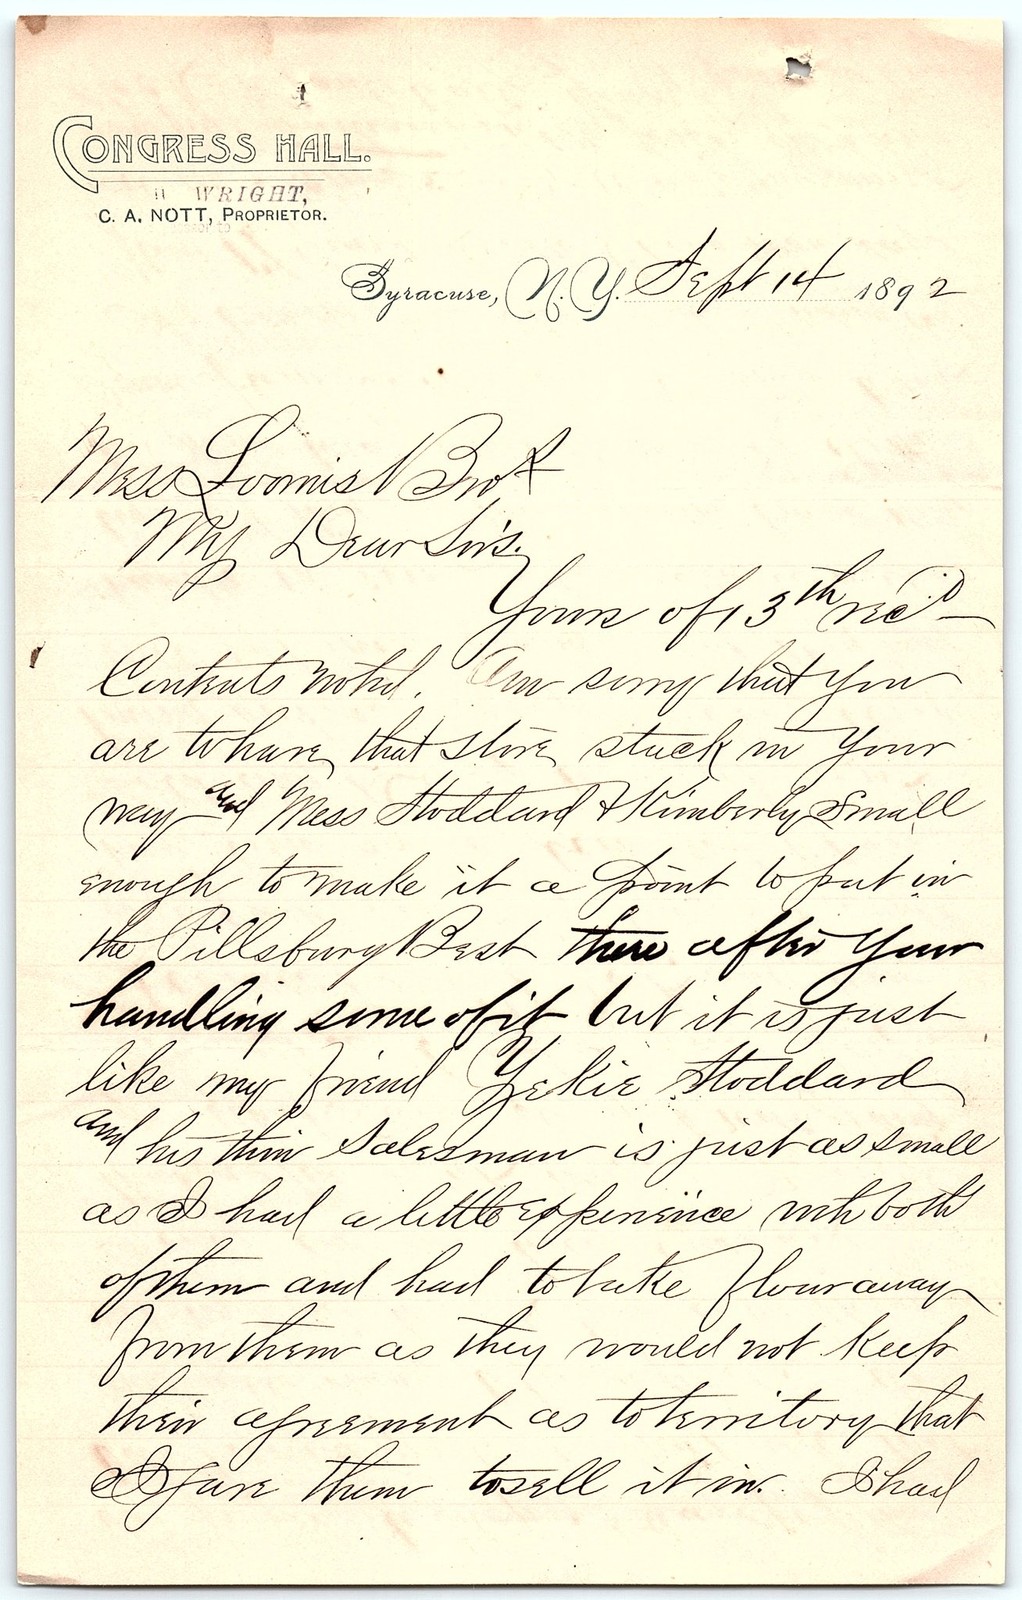 CONGRESS HALL.
WRIGHT,
C. A. NOTT, PROPRIETOR.
Syracuse, N. Y. Sept 14 1892
Mess Loomis Bros
My Dear Sirs.
Yours of 13th rec'd
Contents noted. Am sorry that you
are to have that store stuck in your
way and Mess Stoddard & Kimberly small
enough to make it a point to put in
the Pillsbury Best there after your
handling some of it but it is just
like my friend Zekie Stoddard
and his thin Salesman is just as small
as I had a little experience with both
of them and had to take flour away
from them as they would not keep
their agreement as to territory that
I gave them to sell it in. I had